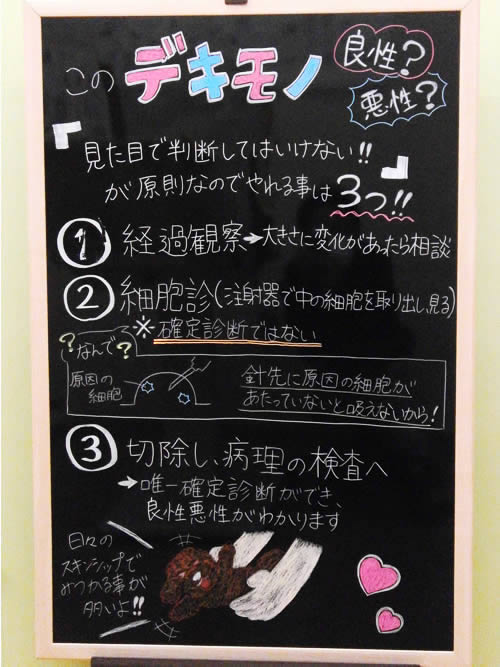 この デキモノ
良性?
悪性?
「見た目で判断してはいけない!!」
が原則なのでやれる事は 3つ!!
① 経過観察→大きさに変化があったら相談
② 細胞診(注射器で中の細胞を取り出し、見る)
※確定診断ではない
?なんで?
原因の
細胞
針先に原因の細胞が
あたっていないと吸えないから!
③ 切除し、病理の検査へ
→唯一確定診断ができ、
良性悪性がわかります
日々の
スキンシップで
みつかる事が
多いよ!!